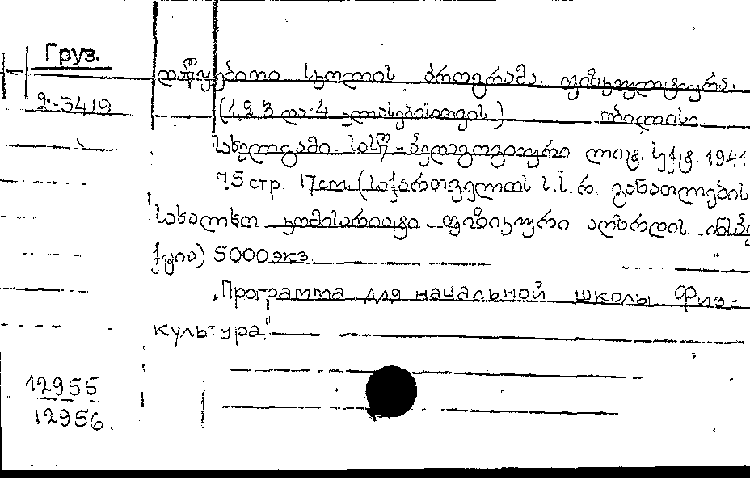 Груз.
დაწყებითი სკოლის პროგრამა. ფიზკულტურა.
2-3419
(1, 2, 3 და 4 კლასებისთვის) თბილისი.
სახელგამი. სას.-პედაგოგიური ლიტ. სექტ. 1941
75 стр. 17см. (საქართველოს ს.ს.რ. განათლების
სახალხო კომისარიატი ფიზიკური აღზრდის ინსპე
ქცია) 5000 экз.
„Программа для начальной школы Физ-
культура“
12955
12956.